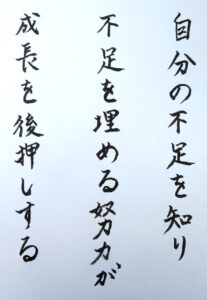 自分の不足を知り
不足を埋める努力が
成長を後押しする